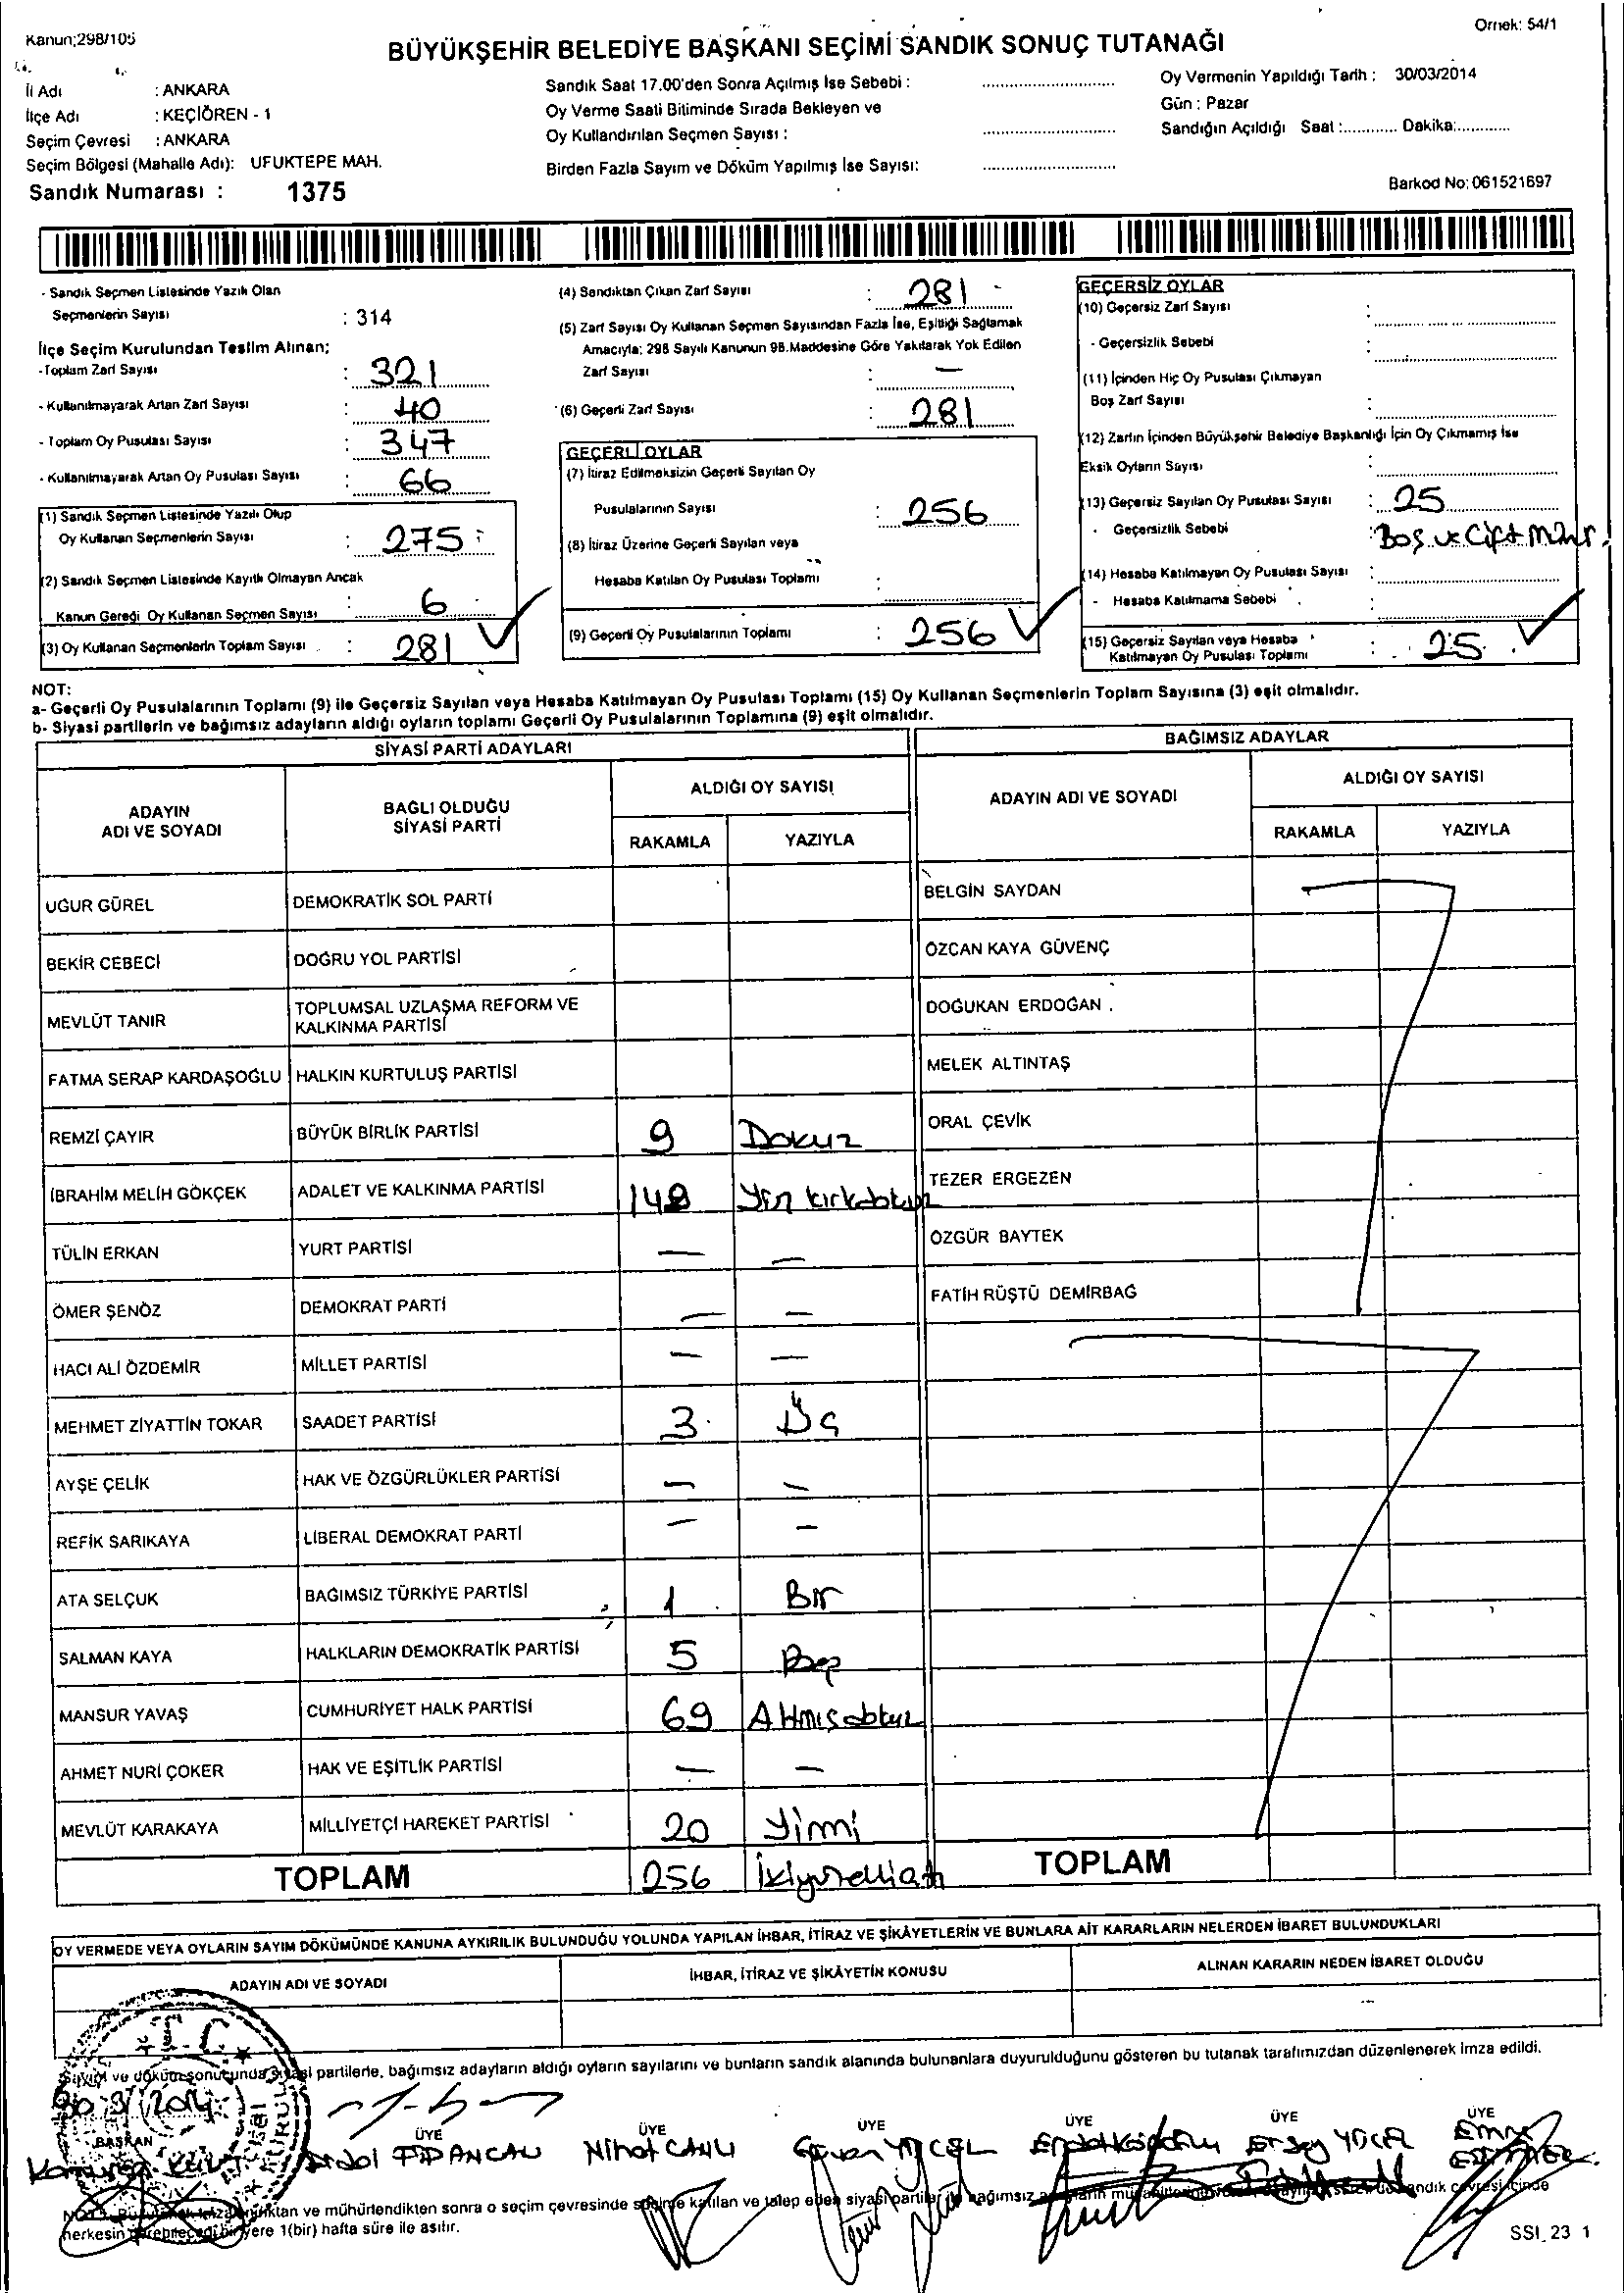 Kanun;298/105
Örnek: 54/1
BÜYÜKŞEHİR BELEDİYE BAŞKANI SEÇİMİ SANDIK SONUÇ TUTANAĞI
İl Adı : ANKARA
İlçe Adı : KEÇİÖREN - 1
Seçim Çevresi : ANKARA
Seçim Bölgesi (Mahalle Adı): UFUKTEPE MAH.
Sandık Numarası : 1375
Sandık Saat 17.00'den Sonra Açılmış İse Sebebi :
Oy Verme Saati Bitiminde Sırada Bekleyen ve
Oy Kullandırılan Seçmen Sayısı :
Birden Fazla Sayım ve Döküm Yapılmış İse Sayısı:
Oy Vermenin Yapıldığı Tarih : 30/03/2014
Gün : Pazar
Sandığın Açıldığı Saat :............ Dakika:............
Barkod No: 061521697
- Sandık Seçmen Listesinde Yazılı Olan
Seçmenlerin Sayısı : 314
İlçe Seçim Kurulundan Teslim Alınan;
-Toplam Zarf Sayısı : 321
- Kullanılmayarak Artan Zarf Sayısı : 40
- Toplam Oy Pusulası Sayısı : 347
- Kullanılmayarak Artan Oy Pusulası Sayısı : 66
(1) Sandık Seçmen Listesinde Yazılı Olup
Oy Kullanan Seçmenlerin Sayısı : 275
(2) Sandık Seçmen Listesinde Kayıtlı Olmayan Ancak
Kanun Gereği Oy Kullanan Seçmen Sayısı : 6
(3) Oy Kullanan Seçmenlerin Toplam Sayısı : 281
(4) Sandıktan Çıkan Zarf Sayısı : 281
(5) Zarf Sayısı Oy Kullanan Seçmen Sayısından Fazla İse, Eşitliği Sağlamak
Amacıyla; 298 Sayılı Kanunun 98.Maddesine Göre Yakılarak Yok Edilen
Zarf Sayısı : —
(6) Geçerli Zarf Sayısı : 281
GEÇERLİ OYLAR
(7) İtiraz Edilmeksizin Geçerli Sayılan Oy
Pusulalarının Sayısı : 256
(8) İtiraz Üzerine Geçerli Sayılan veya
Hesaba Katılan Oy Pusulası Toplamı :
(9) Geçerli Oy Pusulalarının Toplamı : 256
GEÇERSİZ OYLAR
(10) Geçersiz Zarf Sayısı :
- Geçersizlik Sebebi :
(11) İçinden Hiç Oy Pusulası Çıkmayan
Boş Zarf Sayısı :
(12) Zarfın İçinden Büyükşehir Belediye Başkanlığı İçin Oy Çıkmamış İse
Eksik Oyların Sayısı :
(13) Geçersiz Sayılan Oy Pusulası Sayısı : 25
- Geçersizlik Sebebi : Boş ve Çift Mühr.
(14) Hesaba Katılmayan Oy Pusulası Sayısı :
- Hesaba Katılmama Sebebi :
(15) Geçersiz Sayılan veya Hesaba
Katılmayan Oy Pusulası Toplamı : 25
NOT:
a- Geçerli Oy Pusulalarının Toplamı (9) ile Geçersiz Sayılan veya Hesaba Katılmayan Oy Pusulası Toplamı (15) Oy Kullanan Seçmenlerin Toplam Sayısına (3) eşit olmalıdır.
b- Siyasi partilerin ve bağımsız adayların aldığı oyların toplamı Geçerli Oy Pusulalarının Toplamına (9) eşit olmalıdır.
SİYASİ PARTİ ADAYLARI
BAĞIMSIZ ADAYLAR
ADAYIN ADI VE SOYADI
BAĞLI OLDUĞU SİYASİ PARTİ
ALDIĞI OY SAYISI
RAKAMLA YAZIYLA
ADAYIN ADI VE SOYADI
ALDIĞI OY SAYISI
RAKAMLA YAZIYLA
UĞUR GÜREL DEMOKRATİK SOL PARTİ BELGİN SAYDAN
BEKİR CEBECİ DOĞRU YOL PARTİSİ ÖZCAN KAYA GÜVENÇ
MEVLÜT TANIR TOPLUMSAL UZLAŞMA REFORM VE KALKINMA PARTİSİ DOĞUKAN ERDOĞAN
FATMA SERAP KARDAŞOĞLU HALKIN KURTULUŞ PARTİSİ MELEK ALTINTAŞ
REMZİ ÇAYIR BÜYÜK BİRLİK PARTİSİ 9 Dokuz ORAL ÇEVİK
İBRAHİM MELİH GÖKÇEK ADALET VE KALKINMA PARTİSİ 148 TEZER ERGEZEN
TÜLİN ERKAN YURT PARTİSİ — — ÖZGÜR BAYTEK
ÖMER ŞENÖZ DEMOKRAT PARTİ — — FATİH RÜŞTÜ DEMİRBAĞ
HACI ALİ ÖZDEMİR MİLLET PARTİSİ — —
MEHMET ZİYATTİN TOKAR SAADET PARTİSİ 3 Üç
AYŞE ÇELİK HAK VE ÖZGÜRLÜKLER PARTİSİ — —
REFİK SARIKAYA LİBERAL DEMOKRAT PARTİ — —
ATA SELÇUK BAĞIMSIZ TÜRKİYE PARTİSİ 1 Bir
SALMAN KAYA HALKLARIN DEMOKRATİK PARTİSİ 5 Beş
MANSUR YAVAŞ CUMHURİYET HALK PARTİSİ 69 Atmışdokuz
AHMET NURİ ÇOKER HAK VE EŞİTLİK PARTİSİ — —
MEVLÜT KARAKAYA MİLLİYETÇİ HAREKET PARTİSİ 20 Yirmi
TOPLAM 256 İkiyüzelliatı TOPLAM
OY VERMEDE VEYA OYLARIN SAYIM DÖKÜMÜNDE KANUNA AYKIRILIK BULUNDUĞU YOLUNDA YAPILAN İHBAR, İTİRAZ VE ŞİKÂYETLERİN VE BUNLARA AİT KARARLARIN NELERDEN İBARET BULUNDUKLARI
ADAYIN ADI VE SOYADI İHBAR, İTİRAZ VE ŞİKÂYETİN KONUSU ALINAN KARARIN NEDEN İBARET OLDUĞU
T.C.
Sayım ve döküm sonucunda siyasi partilerle, bağımsız adayların aldığı oyların sayılarını ve bunların sandık alanında bulunanlara duyurulduğunu gösteren bu tutanak tarafımızdan düzenlenerek imza edildi.
30/3/2014
BAŞKAN ÜYE ÜYE ÜYE ÜYE ÜYE ÜYE
Erdal FİDANCAN Nihat CANLI Güven YÜCEL Ersoy YÜCEL Emre
ve mühürlendikten sonra o seçim çevresinde seçime katılan ve talep eden siyasi partiler bağımsız
herkesin görebileceği bir yere 1(bir) hafta süre ile asılır.
SSI_23 1